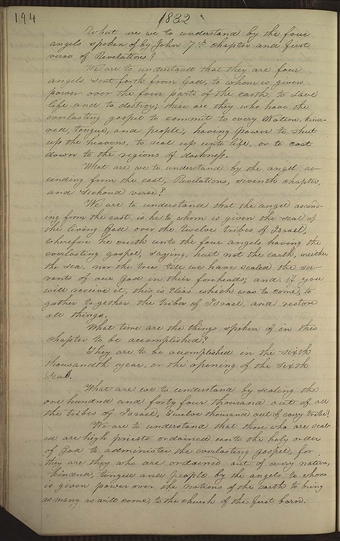 144
1832
What are we to understand by the four
angels, spoken of by John 7th chapter and first
verse of Revelations?
We are to understand that they are four
angels sent forth from God, to whom is given
power over the four parts of the earth, to save
life and to destroy; these are they who have the
everlasting gospel to commit to every Nation, kind-
red, Tongue, and people, having power to shut
up the heavens, to seal up unto life, or to cast
down to the regions of darkness.
What are we to understand by the angel as-
cending from the east, Revelations, seventh chapter,
and second verse?
We are to understand that the angel ascend-
ing from the east, is he to whom is given the seal of
the living God over the twelve tribes of Israel,
wherefore he crieth unto the four angels having the
everlasting gospel, saying, hurt not the earth, neither
the sea, nor the trees till we have sealed the ser-
vants of our God in their foreheads; and if you
will receive it, this is Elias which was to come, to
gather together the tribes of Israel, and restore
all things.
What time are the things spoken of in this
chapter to be accomplished?
They are to be accomplished in the sixth
thousandth year, or the opening of the sixth
seal.
What are we to understand by sealing the
one hundred and forty four thousand out of all
the tribes of Israel, twelve thousand out of every tribe?
We are to understand that those who are seal-
ed are high priests ordained unto the holy order
of God to administer the everlasting gospel, for
they are they who are ordained out of every nation,
kindred, tongue and people by the angels to whom
is given power over the nations of the earth to bring
as many as will come, to the church of the first born.